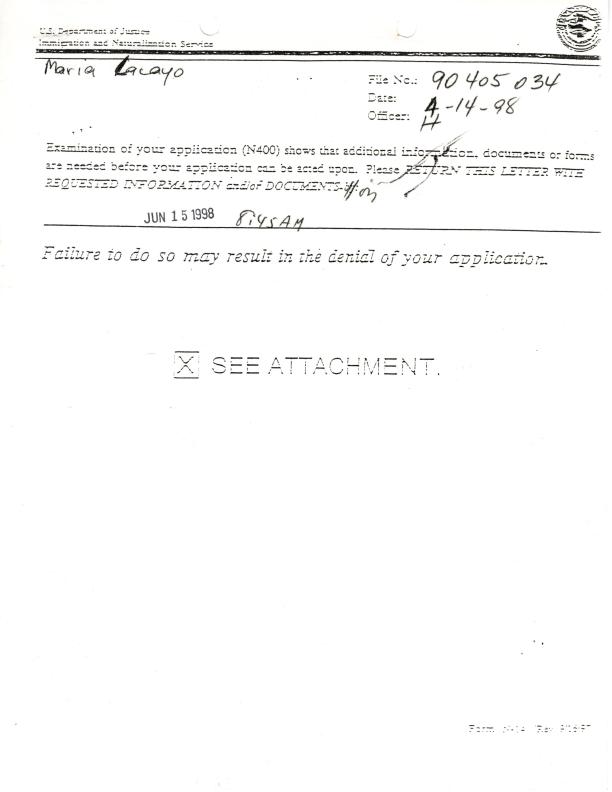 U.S. Department of Justice
Immigration and Naturalization Service
Maria Lacayo
File No.: 90 405 034
Date: 4-14-98
Officer: H
Examination of your application (N400) shows that additional information, documents or forms
are needed before your application can be acted upon. Please RETURN THIS LETTER WITH
REQUESTED INFORMATION and/of DOCUMENTS on
JUN 15 1998 8:45 AM
Failure to do so may result in the denial of your application.
X SEE ATTACHMENT.
Form N-14 Rev 9/16/97